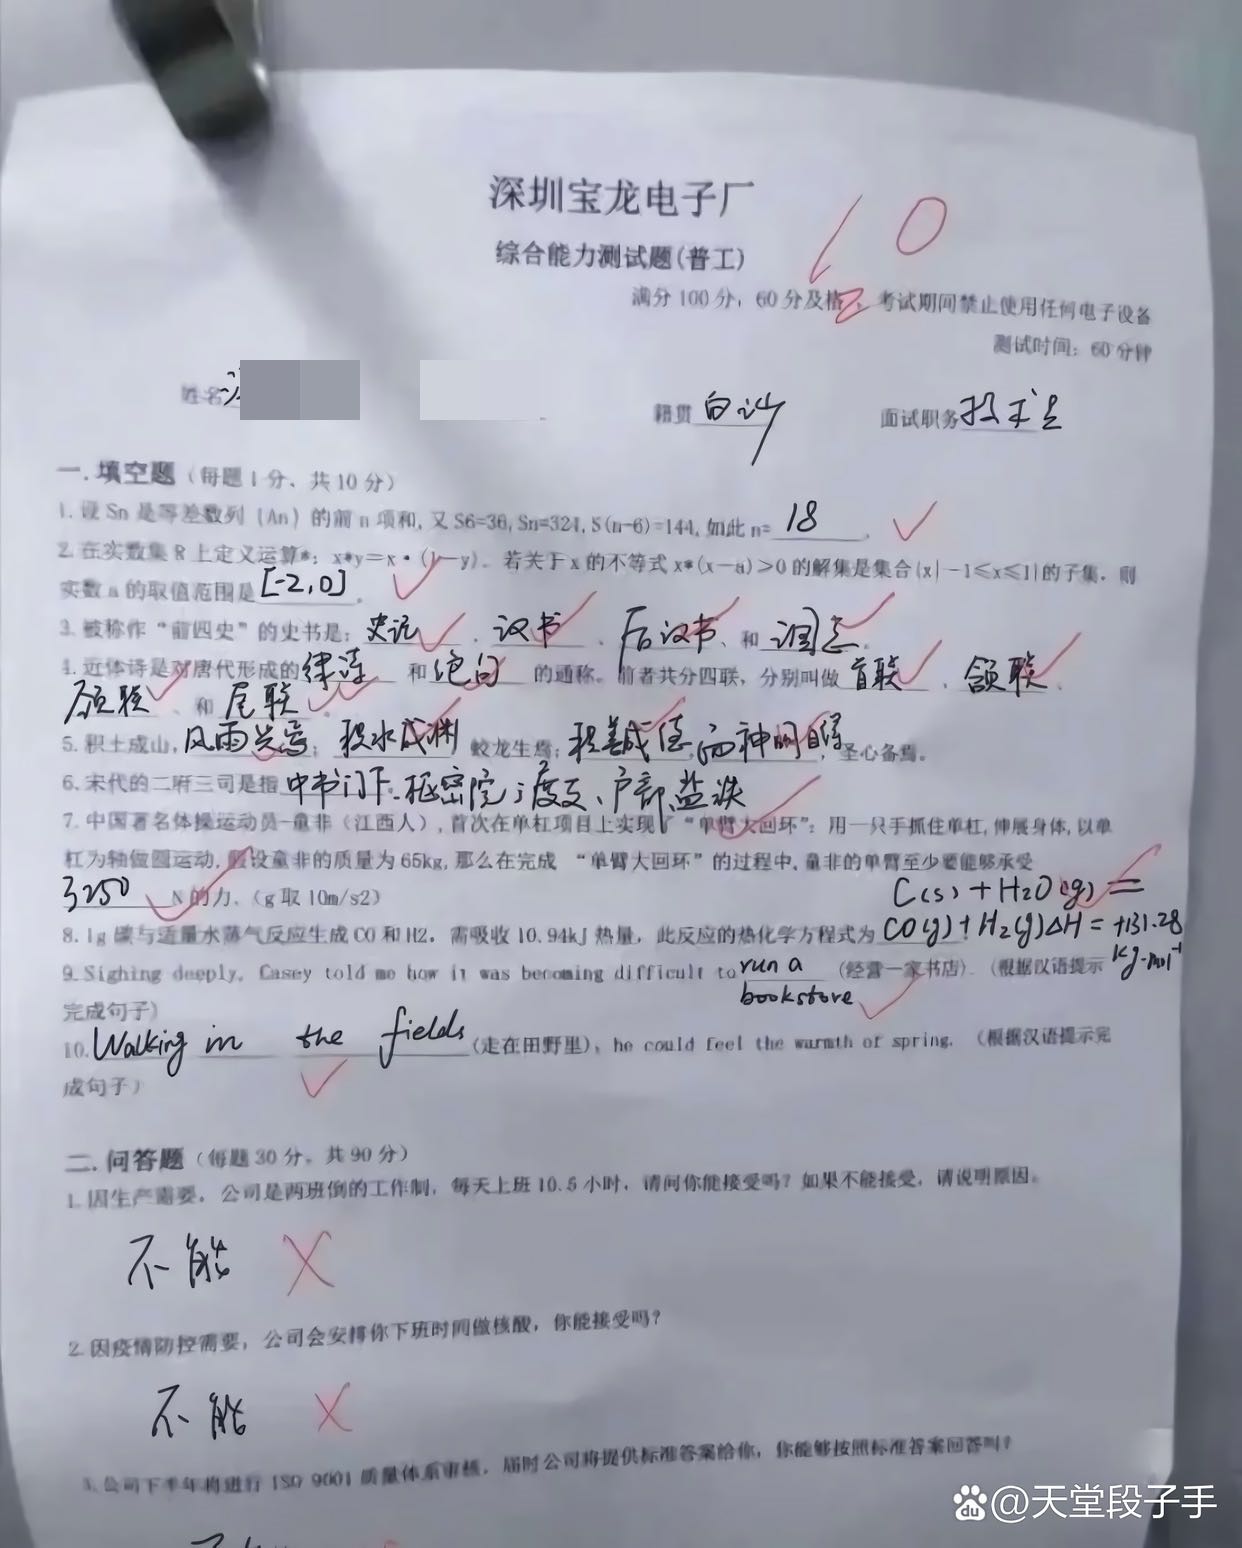 深圳宝龙电子厂
10
综合能力测试题(普工)
满分100分，60分及格，考试期间禁止使用任何电子设备
测试时间：60分钟
姓名
籍贯 白沙 面试职务 技术员
一.填空题（每题1分、共10分）
1.设Sn是等差数列{An}的前n项和,又S6=36,Sn=324,S(n-6)=144,如此n= 18 .
2.在实数集R上定义运算*：x*y=x•(1-y)。若关于x的不等式x*(x-a)>0的解集是集合{x|-1≤x≤1}的子集，则
实数a的取值范围是[-2,0]。
3.被称作“前四史”的史书是：史记、汉书、后汉书、和三国志。
4.近体诗是对唐代形成的律诗和绝句的通称。前者共分四联，分别叫做首联、颔联、
颈联、和尾联。
5.积土成山，风雨兴焉；积水成渊 蛟龙生焉；积善成德,而神明自得，圣心备焉。
6.宋代的二府三司是指中书门下、枢密院；度支、户部、盐铁
7.中国著名体操运动员-童非（江西人）,首次在单杠项目上实现了“单臂大回环”：用一只手抓住单杠,伸展身体,以单
杠为轴做圆运动,假设童非的质量为65kg,那么在完成 “单臂大回环”的过程中,童非的单臂至少要能够承受
3250 N的力.（g取10m/s2）
C(s)+H2O(g)=
8.1g碳与适量水蒸气反应生成CO和H2，需吸收10.94kJ热量，此反应的热化学方程式为 CO(g)+H2(g)ΔH=+131.28
kJ·mol-1
9.Sighing deeply, Casey told me how it was becoming difficult to run a （经营一家书店）.（根据汉语提示
bookstore
完成句子）
10.Walking in the fields（走在田野里）, he could feel the warmth of spring. （根据汉语提示完
成句子）
二.问答题（每题30分，共90分）
1.因生产需要，公司是两班倒的工作制，每天上班10.5小时，请问你能接受吗？如果不能接受，请说明原因。
不能
2.因疫情防控需要，公司会安排你下班时间做核酸，你能接受吗？
不能
3.公司下半年将进行ISO 9001质量体系审核，届时公司将提供标准答案给你，你能够按照标准答案回答吗？
du @天堂段子手